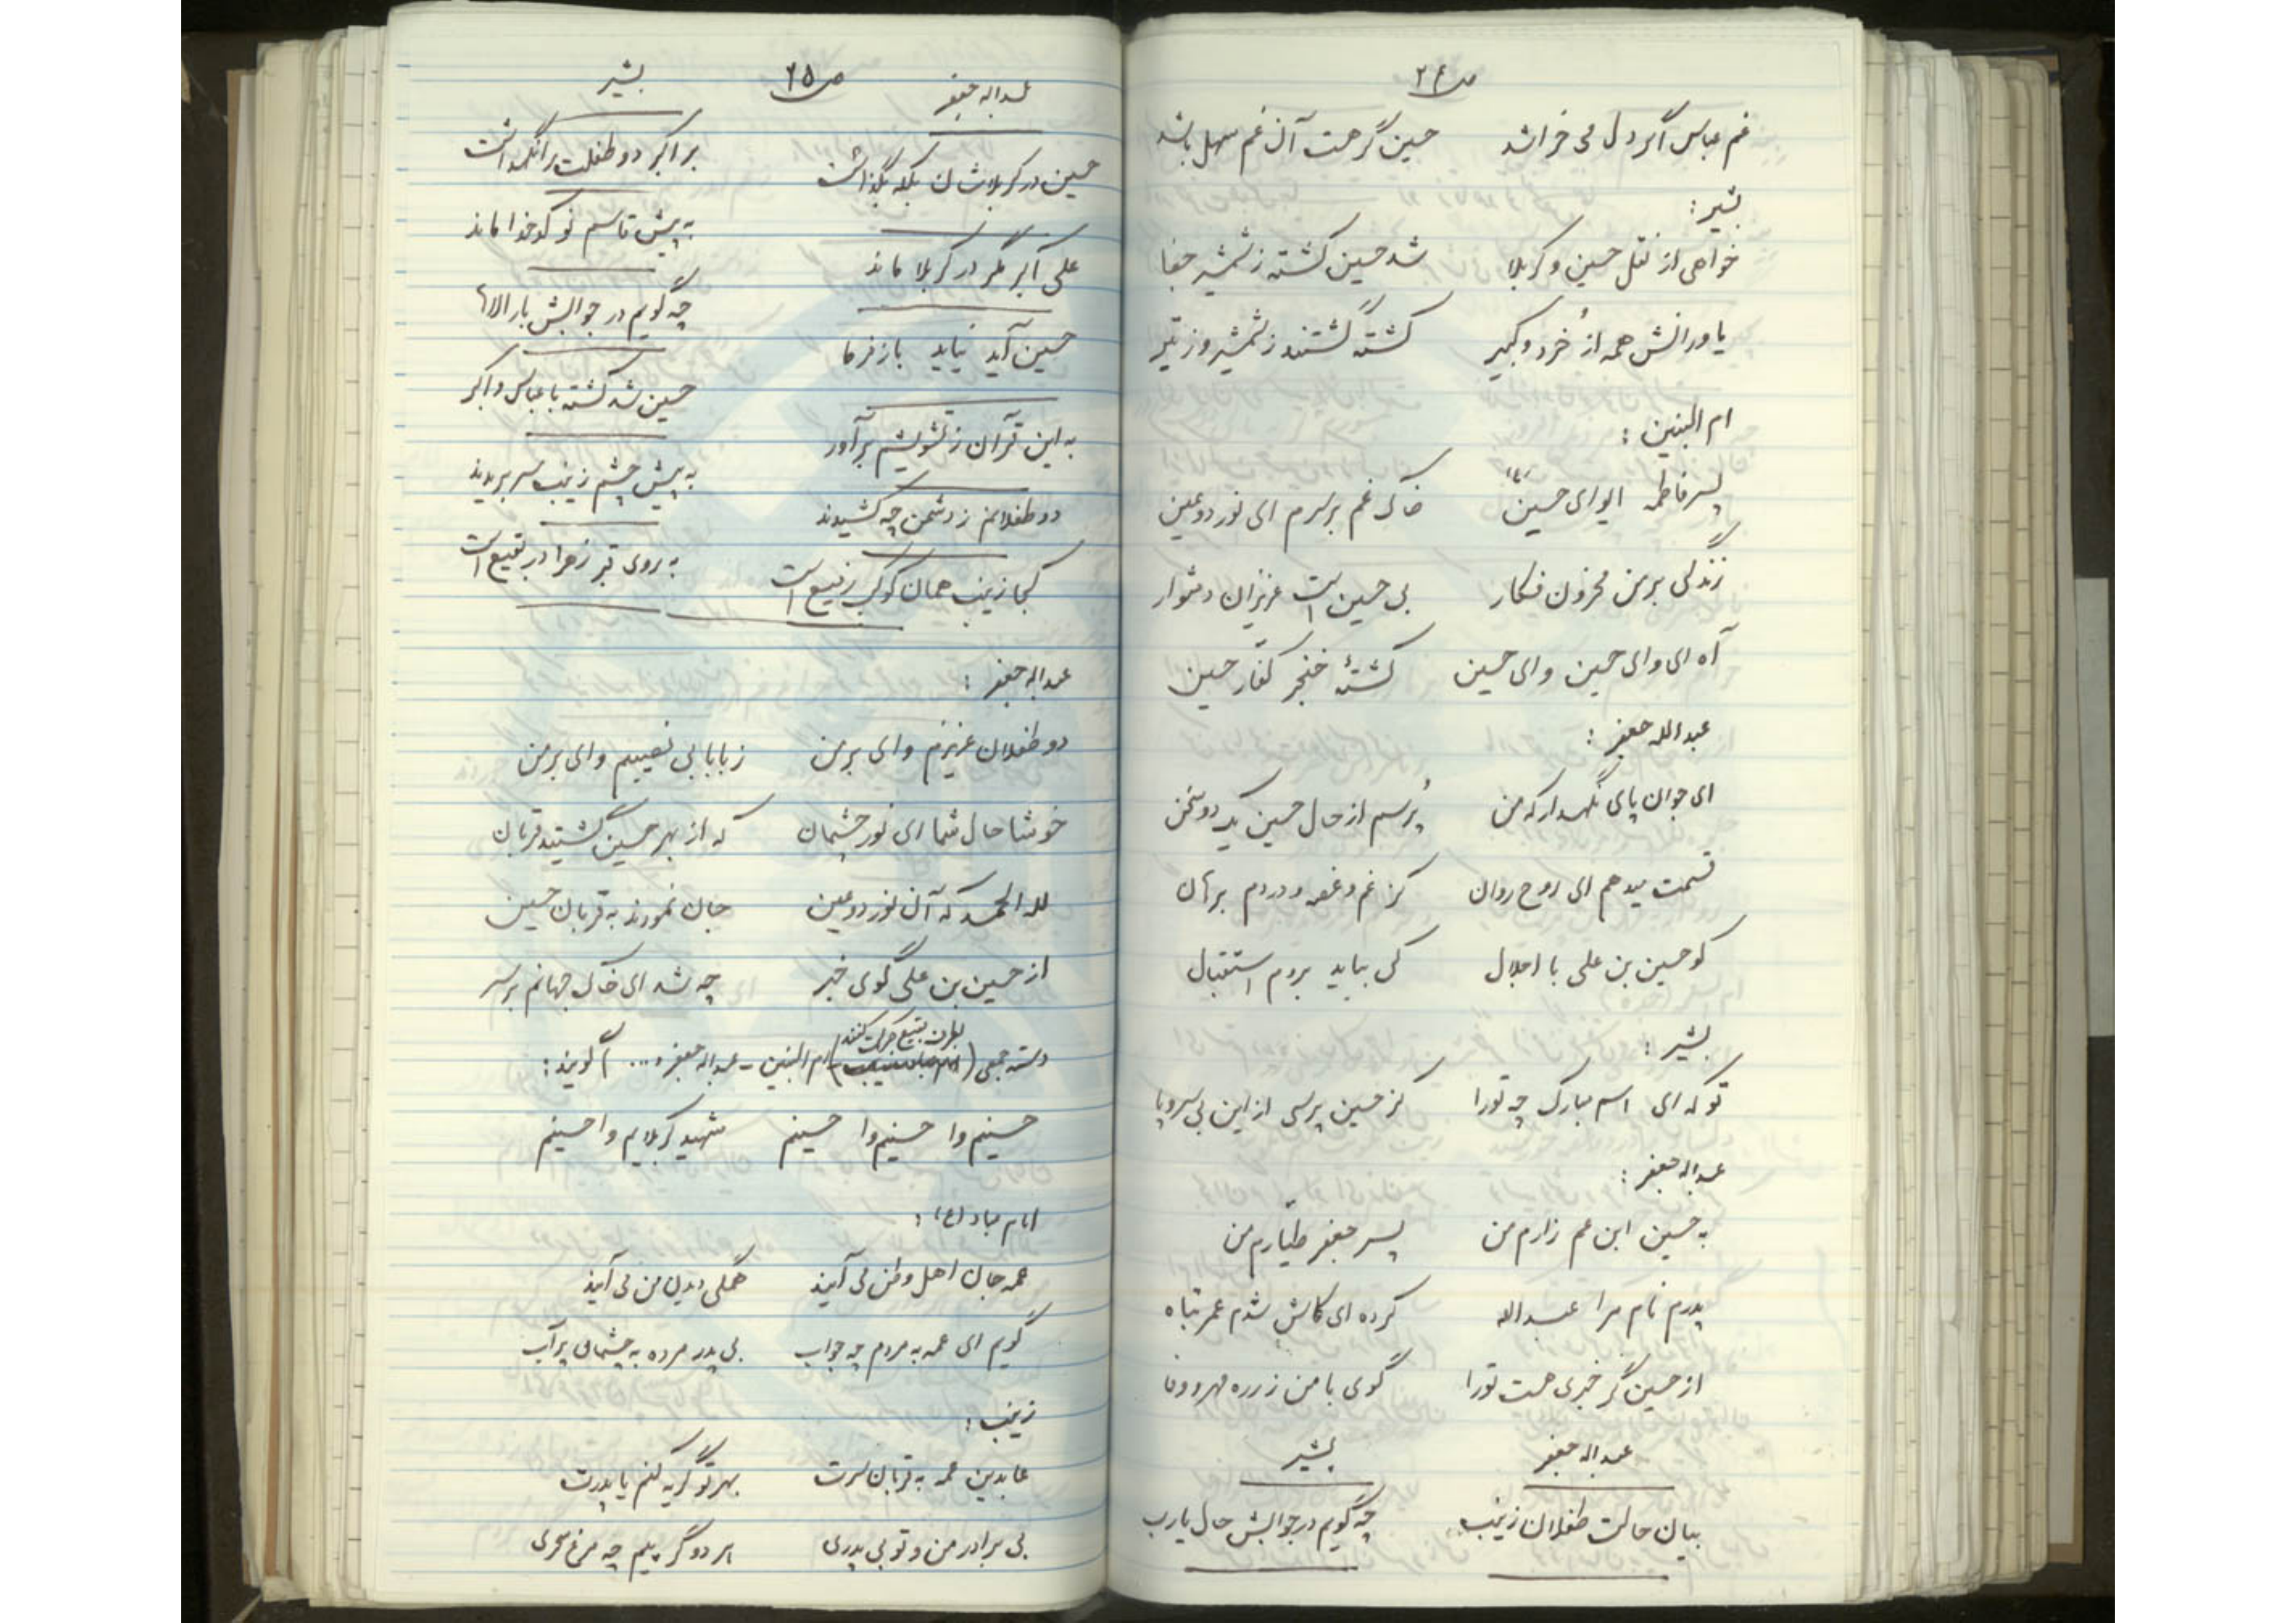 ص ۲۴
غم عباس اگر دل می خراشد حسین گر هست آن غم سهل باشد
بشیر :
خواهی از نقل حسین و کربلا شد حسین کشته ز شمشیر جفا
یاورانش همه از خُرد و کبیر کشته گشتند ز شمشیر و ز تیر
ام البنین :
پسر فاطمه ایوای حسین (ع) خاک غم بر سرم ای نور دو عین
زندگی بر من محزون فکار بی حسین است عزیزان دشوار
آه ای وای حسین وای حسین کشتهٔ خنجر کفّار حسین
عبدالله جعفر :
ای جوان پای نگهدار که من پُرسم از حال حسین یک دو سخن
قسمت میدهم ای روح روان کز غم و غصه و دردم برهان
کو حسین بن علی با اجلال کی بیاید بروم استقبال
بشیر :
تو که ای اسم مبارک چه تو را کز حسین پرسی از این بی سر و پا
عبداله جعفر :
به حسین ابن عم زارم من پسر جعفر طیّارم من
پدرم نام مرا عبداله کرده ای کاش شدم عمر تباه
از حسین گر خبری هست تو را گوی با من ز ره مهر و وفا
عبداله جعفر بشیر
بیان حالت طفلان زینب چه گویم در جوابش حال یارب
ص ۲۵
عبداله جعفر بشیر
حسین در کربلاشان بکله بگذاشت برِ اکبر دو طفلت را نگهداشت
علی اکبر مگر در کربلا ماند به پیش قاسم نو کدخدا ماند
حسین آید نیاید باز فرما چه گویم در جوابش بار الاها
به این قرآن ز تشویشم برآور حسین شد کشته با عباس و اکبر
دو طفلانم ز دشمن چه کشیدند به پیش چشم زینب سر بریدند
کجا زینب همان کوکب رفیع است به روی قبر زهرا در بقیع است
عبداله جعفر :
دو طفلان عزیزم وای بر من ز بابا بی نصیبم وای بر من
خوشا حال شما ای نور چشمان که از بهر حسین گشتید قربان
لله الحمد که آن نور دو عین جان نمودند به قربان حسین
از حسین بن علی گوی خبر چه شد ای خاک جهانم بر سر
بطرف بقیع حرکت کنند
دسته جمعی ( ام البنین - عبداله جعفر و ... ) گویند :
حسینم وا حسینم وا حسینم شهید کربلایم وا حسینم
امام سجاد (ع) :
عمه جان اهل وطن می آیند همگی دیدن من می آیند
گویم ای عمه به مردم چه جواب بی پدر مرده به چشمان پر آب
زینب :
عابدین عمه به قربان سرت بهر تو گریه کنم یا پدرت
بی برادر من و تو بی پدری هر دو گرییم چه مرغ سحری